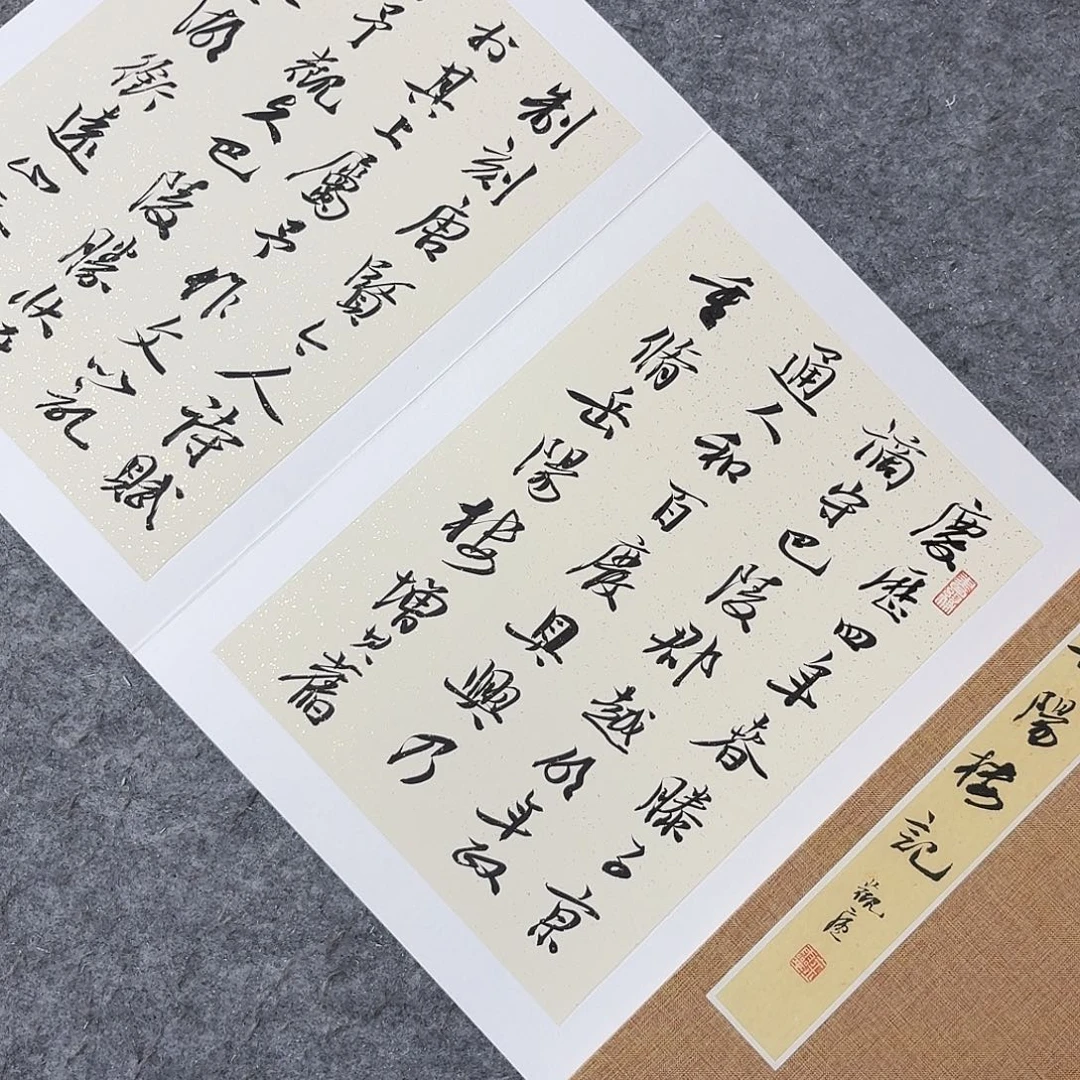 慶歷四年春滕子京
謫守巴陵郡越明年政
通人和百廢具興乃
重脩岳陽樓增其舊
制刻唐賢今人詩賦
於其上屬予作文以記
予觀夫巴陵勝狀在
湖銜遠山
陽樓記